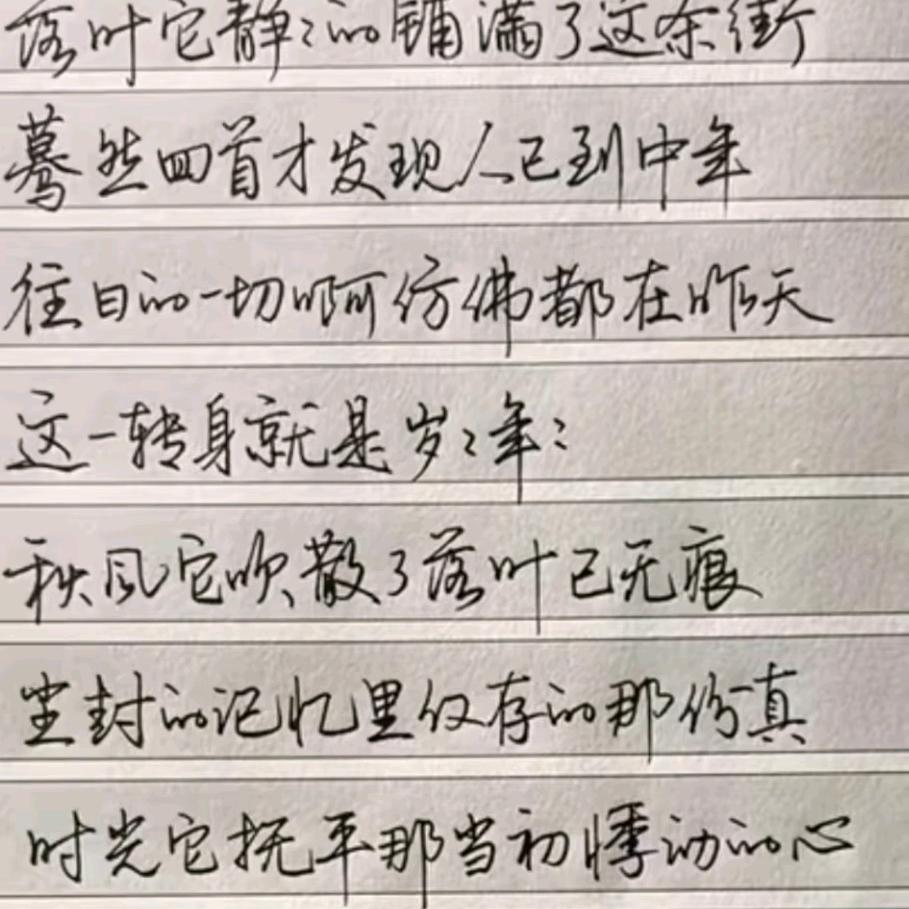 落叶它静々的铺满了这条街
蓦然回首才发现人已到中年
往日的一切啊仿佛都在昨天
这一转身就是岁々年々
秋风它吹散了落叶已无痕
尘封的记忆里仅存的那份真
时光它抚平那当初悸动的心